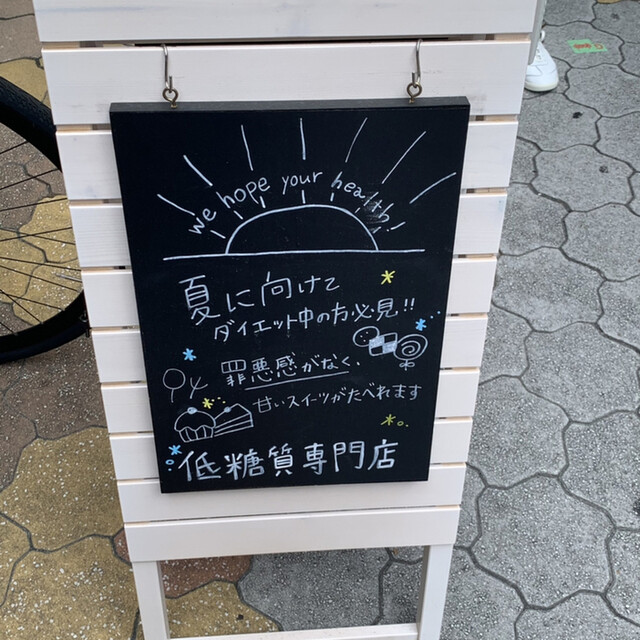 we hope your health!
夏に向けて
ダイエット中の方必見!!
罪悪感がなく、
甘いスイーツがたべれます
低糖質専門店